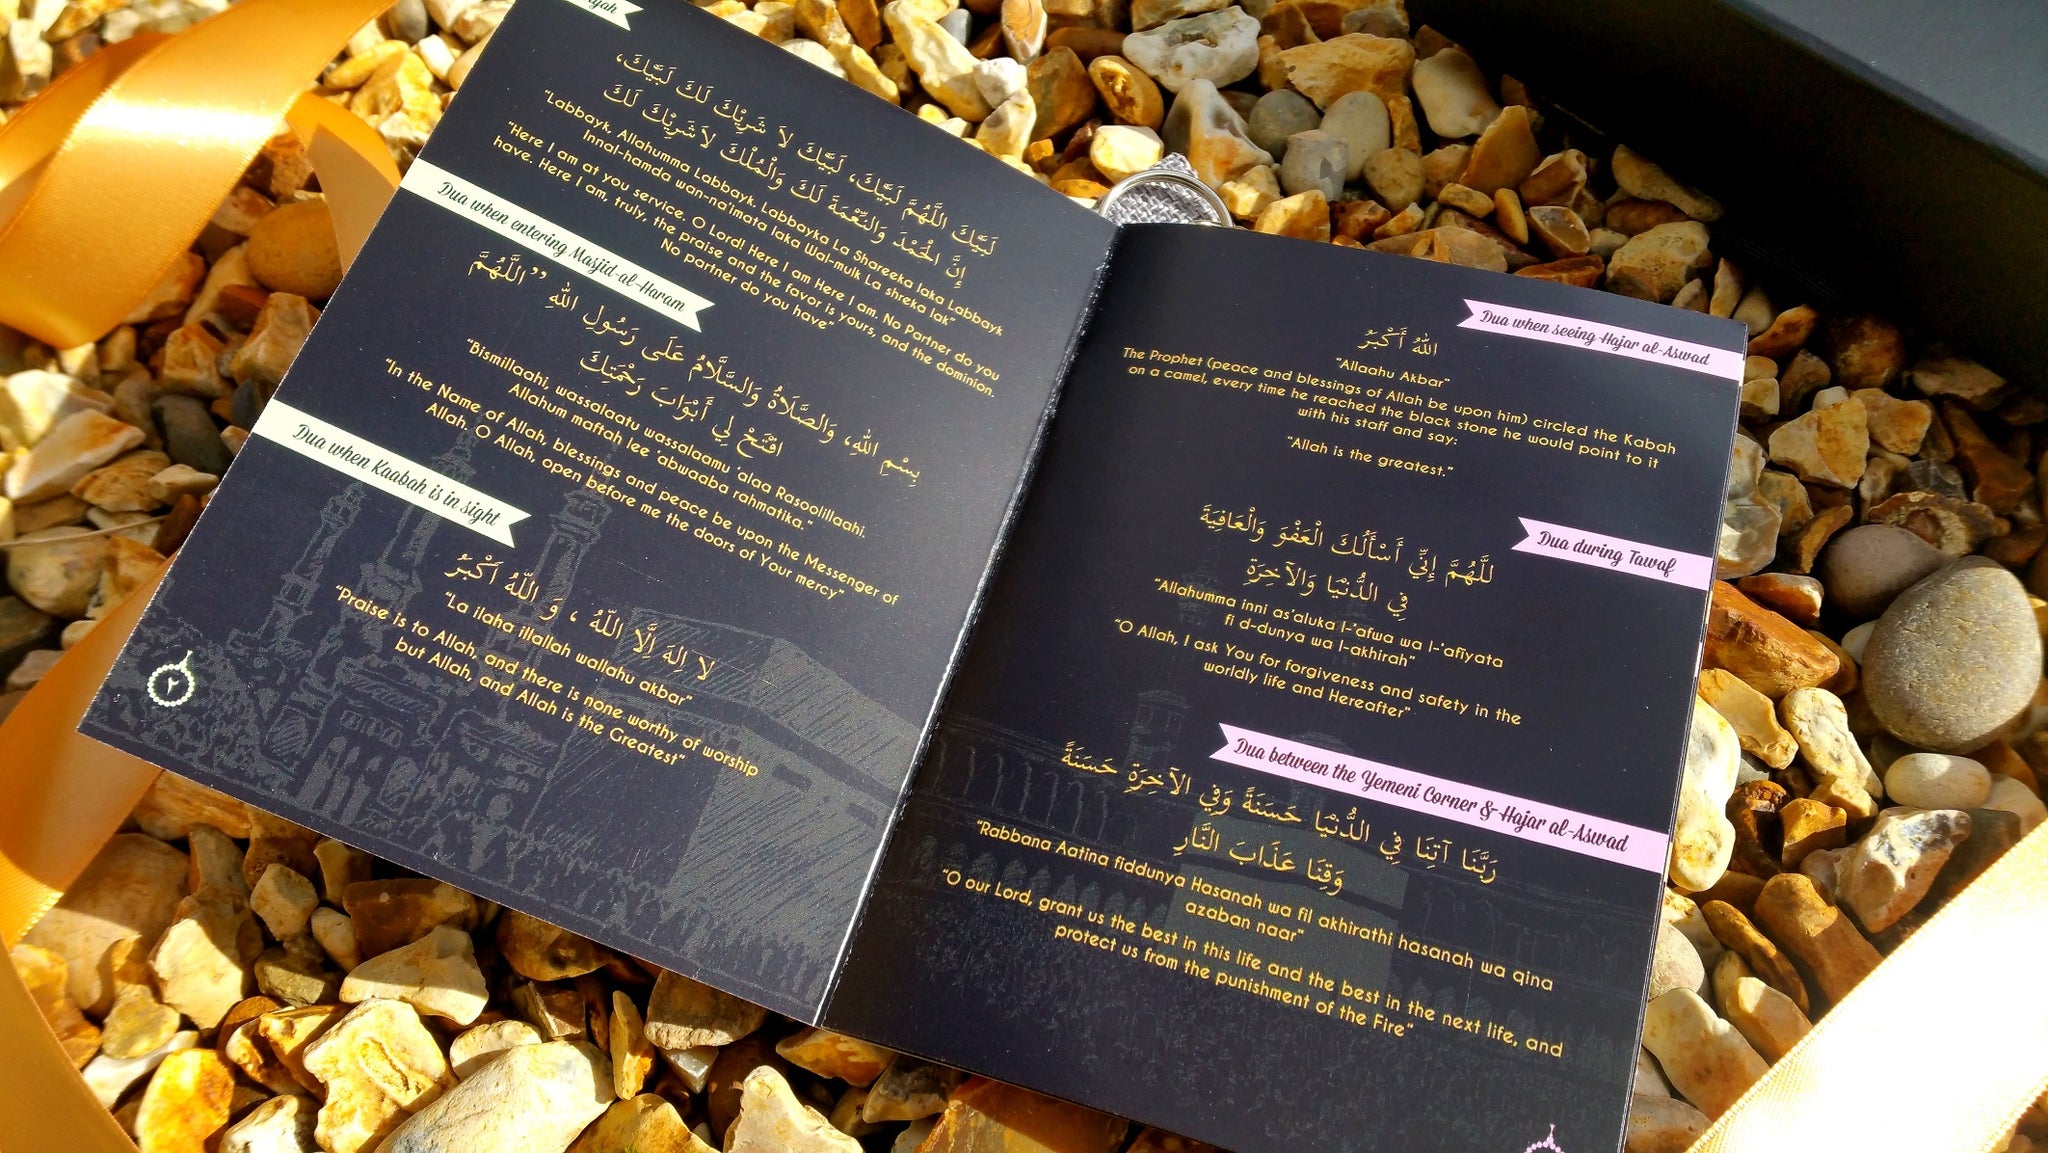 لَبَّيْكَ اللَّهُمَّ لَبَّيْكَ، لَبَّيْكَ لاَ شَرِيْكَ لَكَ لَبَّيْكَ،
إِنَّ الْحَمْدَ وَالنِّعْمَةَ لَكَ وَالْمُلْكَ لاَشَرِيْكَ لَكَ
"Labbayk, Allahumma Labbayk. Labbayka La Shareeka laka Labbayk
Innal-hamda wan-na'imata laka Wal-mulk La shreka lak"
"Here I am at you service. O Lord! Here I am Here I am. No Partner do you
have. Here I am, truly, the praise and the favor is yours, and the dominion.
No partner do you have"
Dua when entering Masjid-al-Haram
بِسْمِ اللهِ، وَالصَّلَاةُ وَالسَّلَامُ عَلَى رَسُولِ اللهِ ” اللَّهُمَّ
افْتَحْ لِي أَبْوَابَ رَحْمَتِكَ
"Bismillaahi, wassalaatu wassalaamu 'alaa Rasoolillaahi.
Allahum maftah lee 'abwaaba rahmatika."
"In the Name of Allah, blessings and peace be upon the Messenger of
Allah. O Allah, open before me the doors of Your mercy"
Dua when Kaabah is in sight
لَا اِلٰهَ اِلَّا اللّٰهُ ، وَ اللّٰهُ اَكْبَرُ
"La ilaha illallah wallahu akbar"
"Praise is to Allah, and there is none worthy of worship
but Allah, and Allah is the Greatest"
٢
Dua when seeing Hajar al-Aswad
اللهُ أَكْبَرُ
"Allaahu Akbar"
The Prophet (peace and blessings of Allah be upon him) circled the Kabah
on a camel, every time he reached the black stone he would point to it
with his staff and say:
"Allah is the greatest."
Dua during Tawaf
للَّهُمَّ إِنِّي أَسْأَلُكَ الْعَفْوَ وَالْعَافِيَةَ
فِي الدُّنْيَا وَالآخِرَةِ
"Allahumma inni as'aluka l-'afwa wa l-'afiyata
fi d-dunya wa l-akhirah"
"O Allah, I ask You for forgiveness and safety in the
worldly life and Hereafter"
Dua between the Yemeni Corner & Hajar al-Aswad
رَبَّنَا آتِنَا فِي الدُّنْيَا حَسَنَةً وَفِي الآخِرَةِ حَسَنَةً
وَقِنَا عَذَابَ النَّارِ
"Rabbana Aatina fiddunya Hasanah wa fil akhirathi hasanah wa qina
azaban naar"
"O our Lord, grant us the best in this life and the best in the next life, and
protect us from the punishment of the Fire"